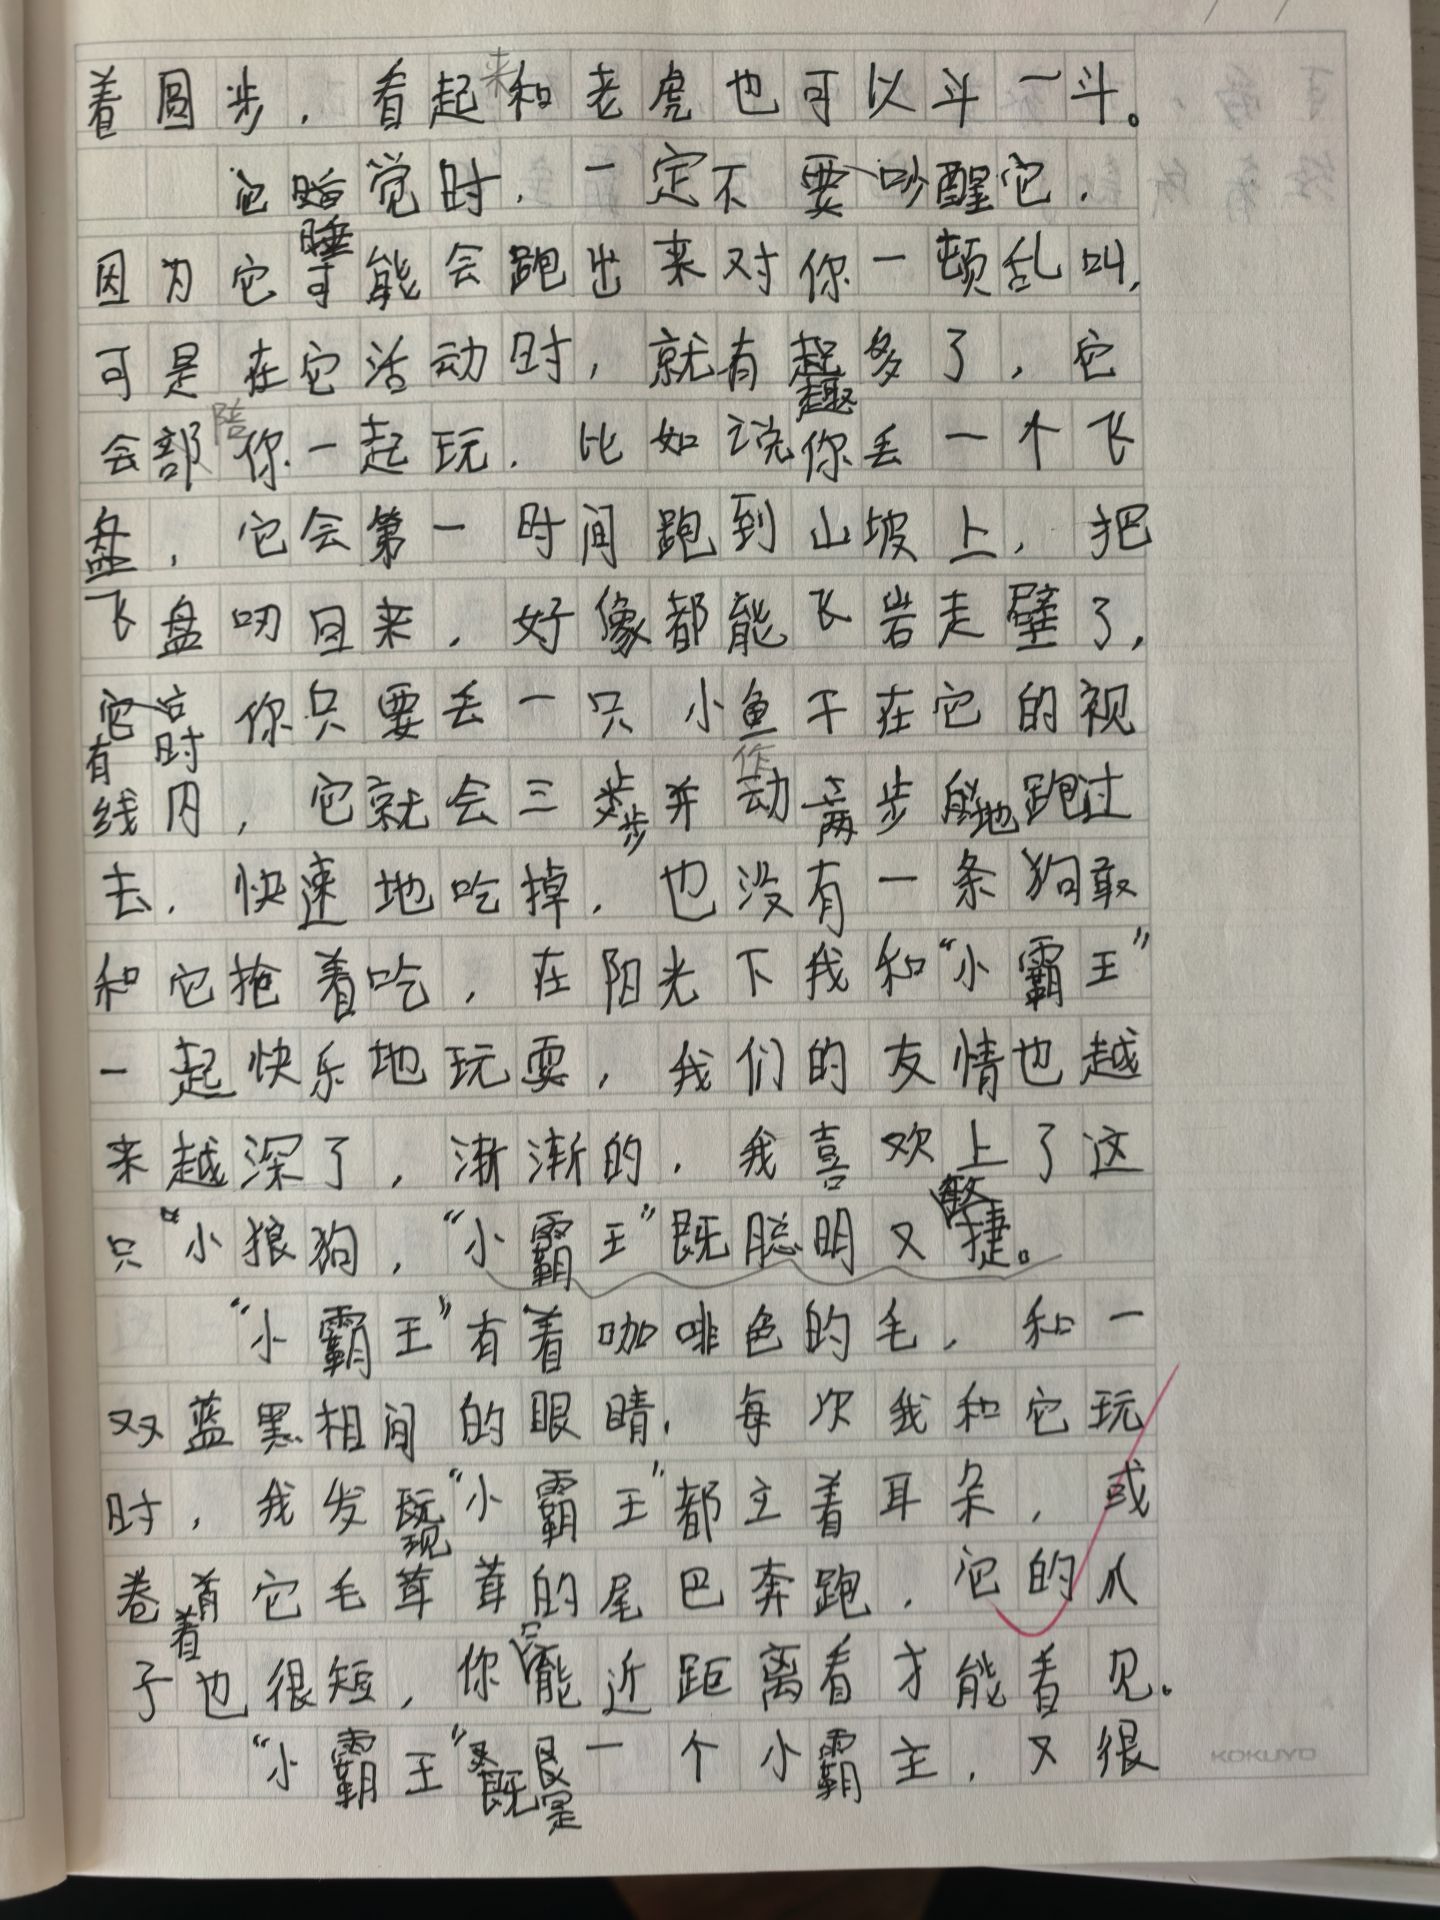 着圆步，看起来和老虎也可以斗一斗。
它睡觉时，一定不要吵醒它，
因为它可能会跑出来对你一顿乱叫，
可是在它活动时，就有趣多了，它
会陪你一起玩，比如说你丢一个飞
盘，它会第一时间跑到山坡上，把
飞盘叨回来，好像都能飞岩走壁了，
有时你只要丢一只小鱼干在它的视
线内，它就会三步并作两步地跑过
去，快速地吃掉，也没有一条狗敢
和它抢着吃，在阳光下我和“小霸王”
一起快乐地玩耍，我们的友情也越
来越深了，渐渐的，我喜欢上了这
只“小狼狗，“小霸王”既聪明又敏捷。
“小霸王”有着咖啡色的毛，和一
双蓝黑相间的眼睛，每次我和它玩
时，我发现“小霸王”都主着耳朵，或
卷着它毛茸茸的尾巴奔跑，它的爪
子也很短，你只能近距离看才能看见。
“小霸王”既是一个小霸主，又很
KOKUYO